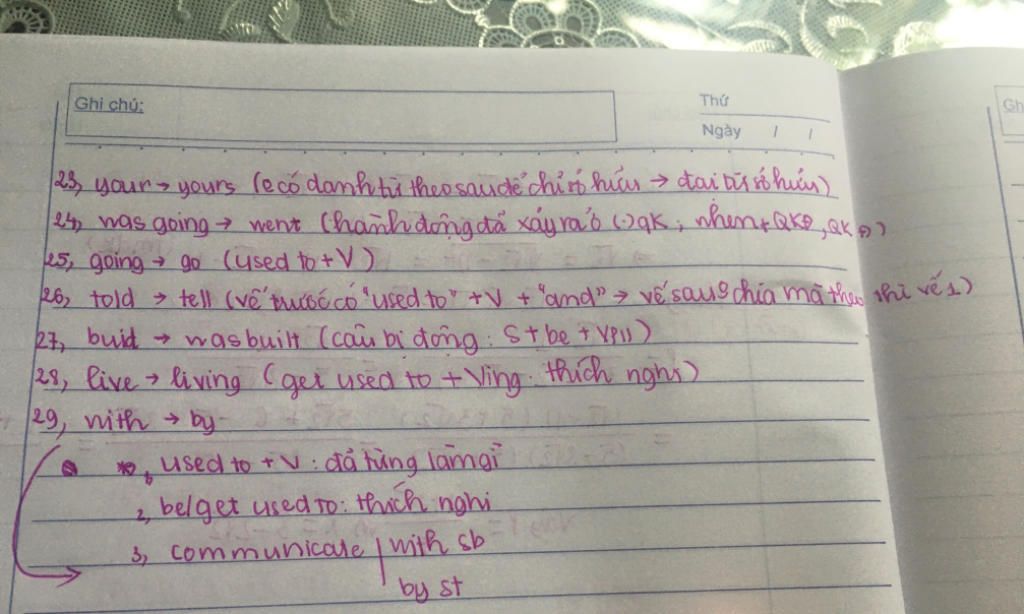 Ghi chú:
Thứ
Ngày / /
23, your → yours (e có danh từ theo sau để chỉ sở hữu → đại từ sở hữu)
24, was going → went (hành động đã xảy ra ở (-) qk ; when + QKĐ, QKĐ)
25, going → go (used to + V)
26, told → tell (vế trước có "used to" + V + "and" → vế sau chia mà theo thì vế 1)
27, buid → was built (câu bị động : S + be + VpII)
28, live → living (get used to + Ving : thích nghi)
29, with → by
1, used to + V : đã từng làm gì
2, be/get used to : thích nghi
3, communicate with sb
by st
Gh